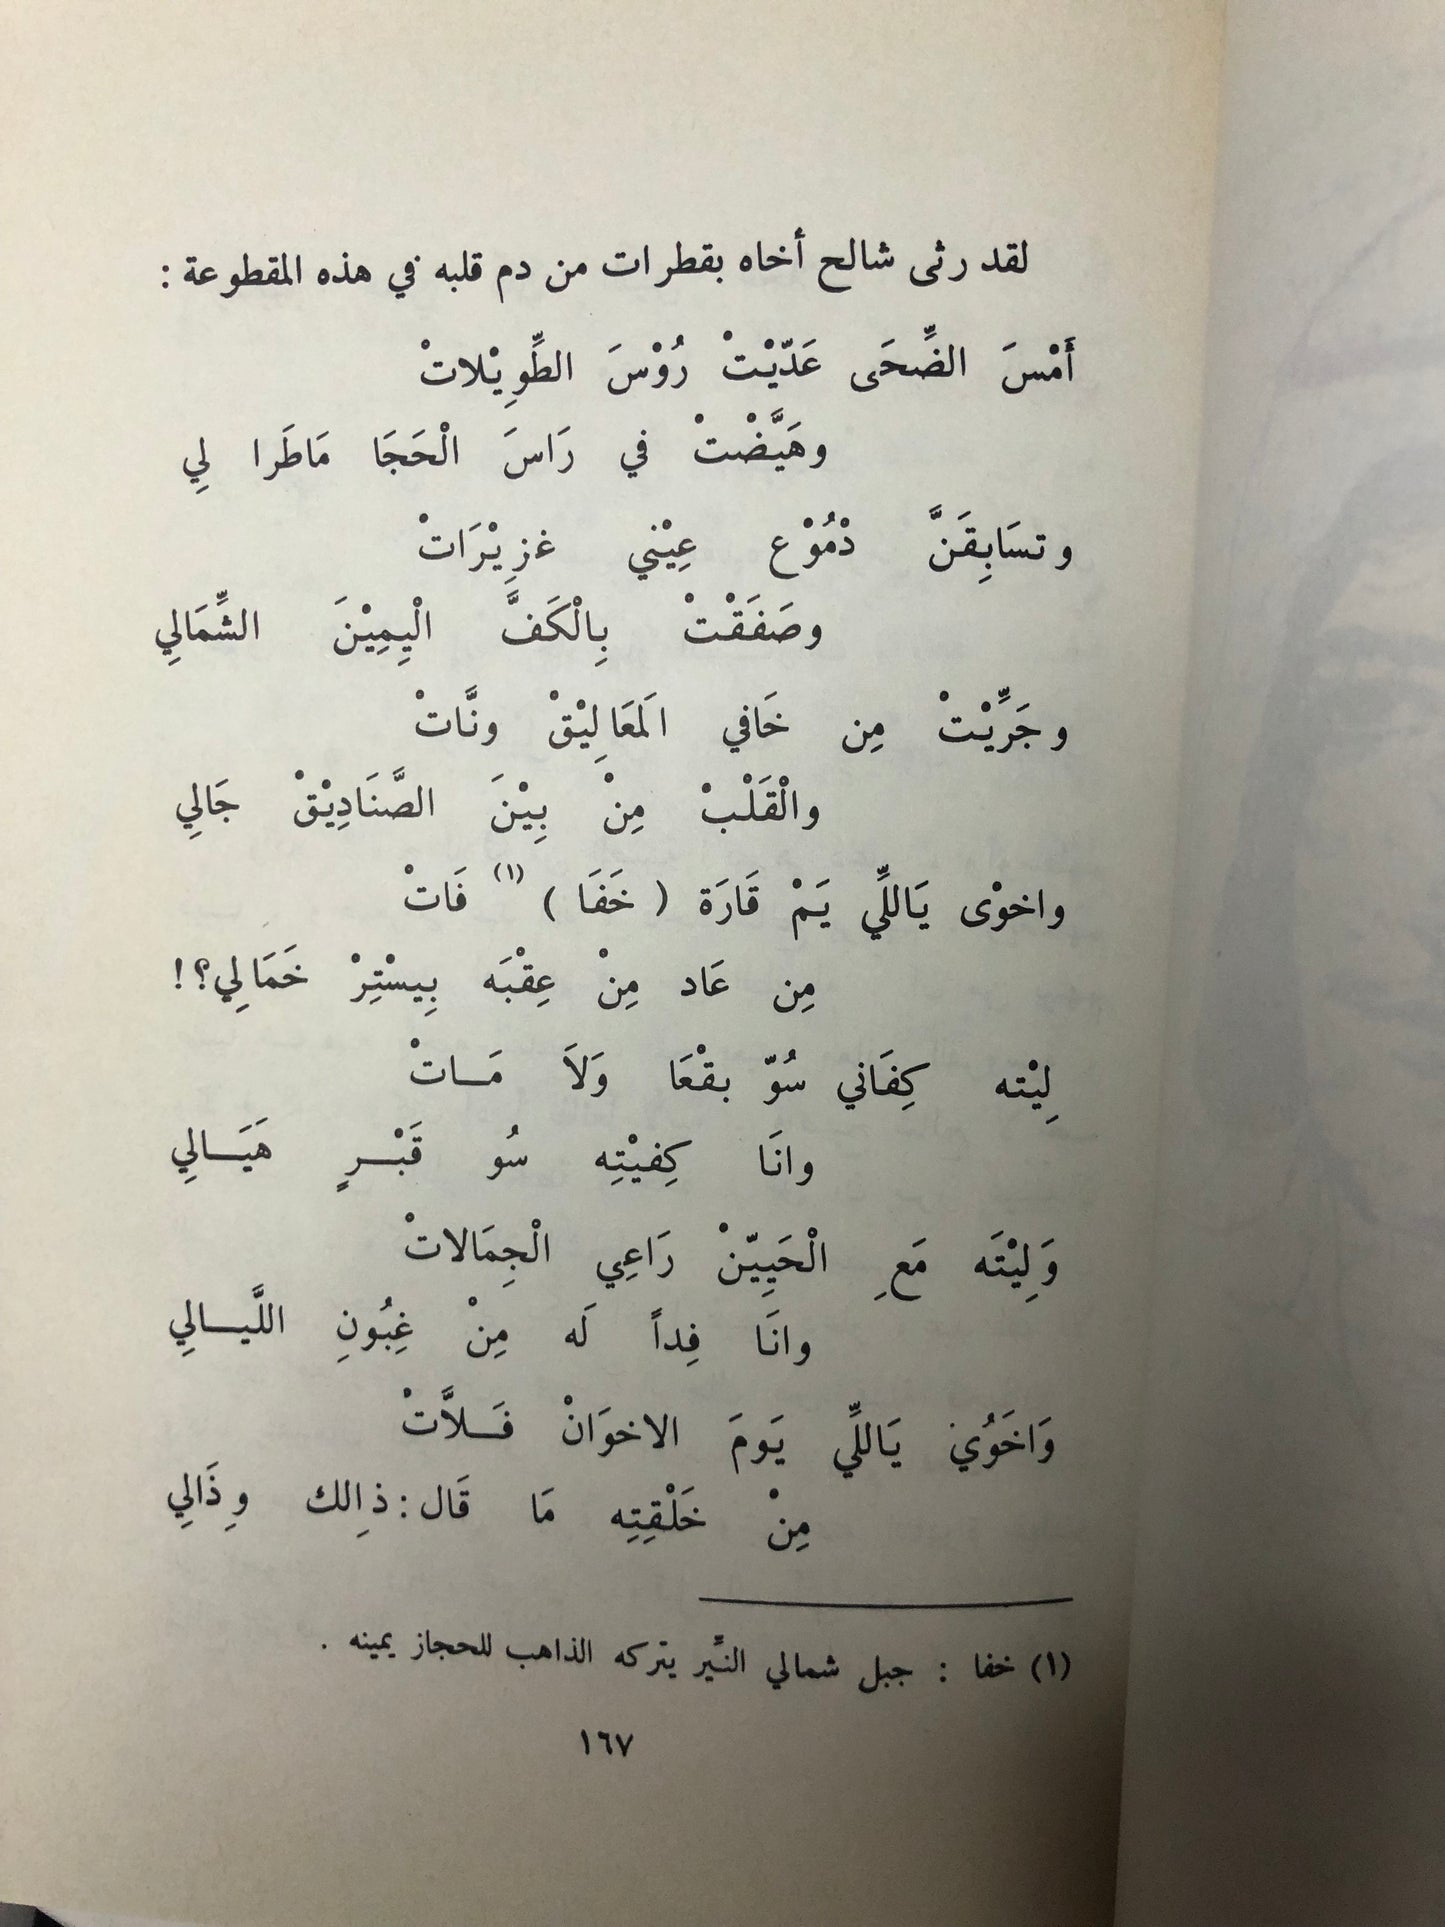 لقد رثى شالح أخاه بقطرات من دم قلبه في هذه المقطوعة :
أَمْسَ الضِّحَى عَدّيْتْ رُوْسَ الطِّوِيْلاتْ
وهَيَّضْتْ في رَاسَ الْحَجَا مَاطَرا لِي
وتسَابِقَنَّ دْمُوْع عِيْني غزِيْرَاتْ
وصَفَقْتْ بِالْكَفَّ الْيِمِيْنَ الشِّمَالِي
وجَرِّيْتْ مِن خَافي المَعَالِيْقْ ونَّاتْ
والْقَلْبْ مِنْ بِيْنَ الصَّنَادِيْقْ جَالِي
واخوْى يَاللِّي يَمْ قَارَة ( خَفَا ) (١) فَاتْ
مِن عَاد مِنْ عِقْبَه بِيسْتِرْ خَمَالِي؟!
لِيْته كِفَاني سُوّ بقْعَا وَلاَ مَــاتْ
وانَا كِفيْتِه سُو قَبْــرٍ هَيَــالِي
وَلِيْتَه مَعِ الْحَيِيّنْ رَاعِي الْجِمَالاتْ
وانَا فِداً لَه مِنْ غِبُونِ اللَّيــالِي
وَاخَوُيْ يَاللِّي يَومَ الاخوَانْ فَــلاَّتْ
مِنْ خَلْقِتِه مَا قَال : ذِالك وِذَالِي
(١) خفا : جبل شمالي النِّير يتركه الذاهب للحجاز يمينه .
١٦٧